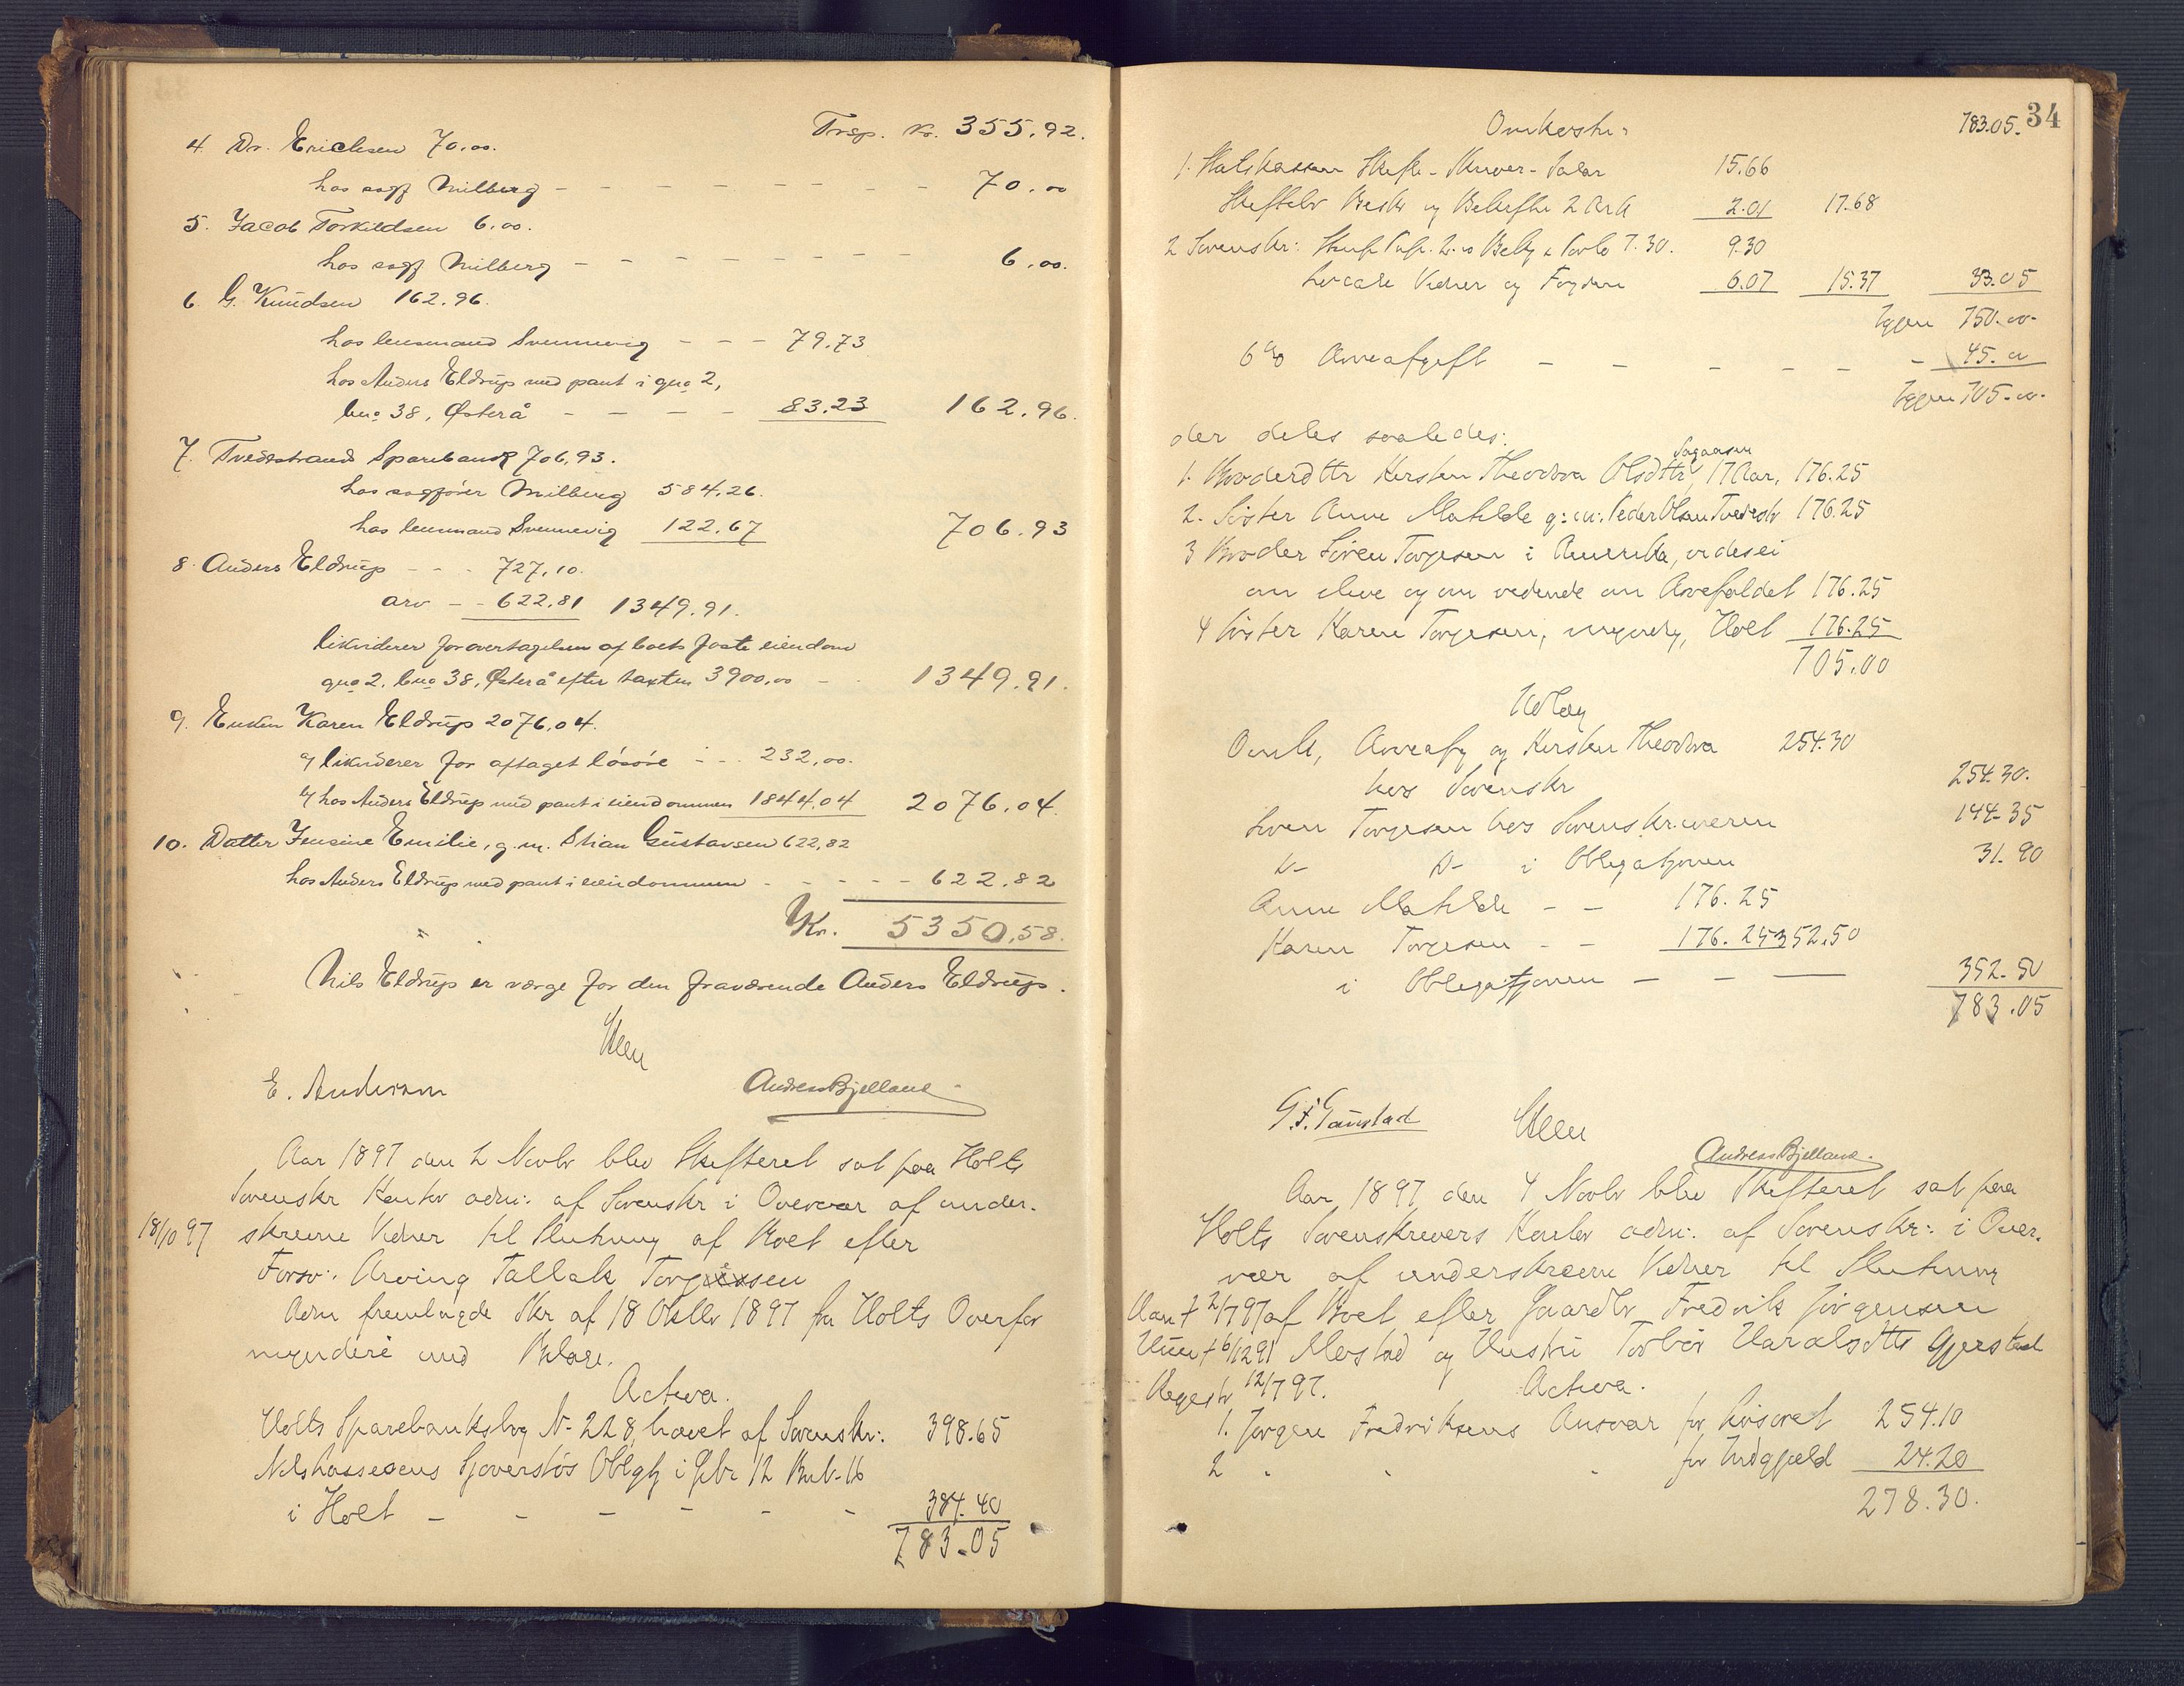 Trsp. Kr. 355.92.
4. Dr. Erichsen 70.00.
hos sagf Milberg - - - - - - - - - 70.00
5. Jacob Torkildsen 6.00.
hos sagf Milberg - - - - - - - - - 6.00.
6. G. Knudsen 162.96.
hos lensmand Svennevig - - - 79.73
hos Anders Eldrup med pant i gno 2,
bno 38, Østerå - - - - 83.23 162.96.
7. Tvedestrand Sparebank 706,93.
hos sagfører Milberg 584,26.
hos lensmand Svennevig 122.67 706.93
8. Anders Eldrup - - - 727,10.
arv - - 622,81 1349.91.
likviderer for overtagelsen af boets faste eiendom
gno 2, bno 38, Østerå efter taxten 3900,00 - - 1349.91.
9. Enken Karen Eldrup 2076,04.
likviderer for aftaget løsøre - - - 232,00.
hos Anders Eldrup med pant i eiendommen 1844,04 2076,04.
10. Datter Jensine Emilie, g. m. Stian Gustavsen 622,82
hos Anders Eldrup med pant i eiendommen - - - - - 622.82
Kr. 5350,58.
Nils Eldrup er værge for den fraværende Anders Eldrup.
E. Andersen
Andreas Bjelland
Aar 1897 den 2 Novbr blev Skifteret sat paa Holts
Sorenskr Kontor adm: af Sorenskr i Overvær af under-
18/10 97 skrevne Vidner til Slutning af Boet efter
Forsv: Arving Tallak Torgersen
Adm fremlagde Skr af 18 Oktbr 1897 fra Holts Overfor
mynderi med Bilage.
Activa.
Holts Sparebanksbog N- 228, hævet af Sorenskr: 398.65
Oblg i Gbr 12 Brb- 16
i Holt - - - - - - 384.40
783.05
34
Omkostn: 783.05.
1. Statskassen Skifte-Skriver-Salær 15.66
Skiftebr Beskr og Bekræfte 2 Ark 2.01 17.68
2 Sorenskr: 7.30. 9.30
Vidner og 6.07 15.37 33.05
Igjen 750.00-
6% Arveafgift - - - - - - - 45.00
Igjen 705.00-
der deles saaledes:
1. Broderdttr Kirsten Theodora Olsdttr, 17 Aar, 176.25
2. Søster Anne Mathilde g: m: Peder Olsen Tvedestr 176.25
3 Broder Søren Torgersen i Amerika, vides ei
om ilive og om vidende om Arvefaldet 176.25
4 Søster Karen Torgersen, myndig, Holt 176.25
705.00
Udlæg
Omk, Arveafg og Kirsten Theodora 254.30
hos Sorenskr 254.30.
Søren Torgersen hos Sorenskriveren 144.35
D- D- i Obligationen 31.90
Anne Mathilde - - 176.25
Karen Torgersen - - 176.25 352.50
i Obligationen - - - 352.50
783.05
Andreas Bjelland.
Aar 1897 den 4 Novbr blev Skifteret sat paa
Holts Sorenskrivers Kontor adm: af Sorenskr: i Over-
vær af underskrevne Vidner til Slutning
Man † 2/7 97 af Boet efter Gaardbr Fredrik Jørgensen
Hust † 6/12 91 Mostad og Hustru Torbør Haralsdttr Gjerstad
Regestr 12/7 97. Activa.
1. Jørgen Fredriksens Ansvar for Løsøret 254.10
2 " " " for Indgjæld 24.20
278.30.